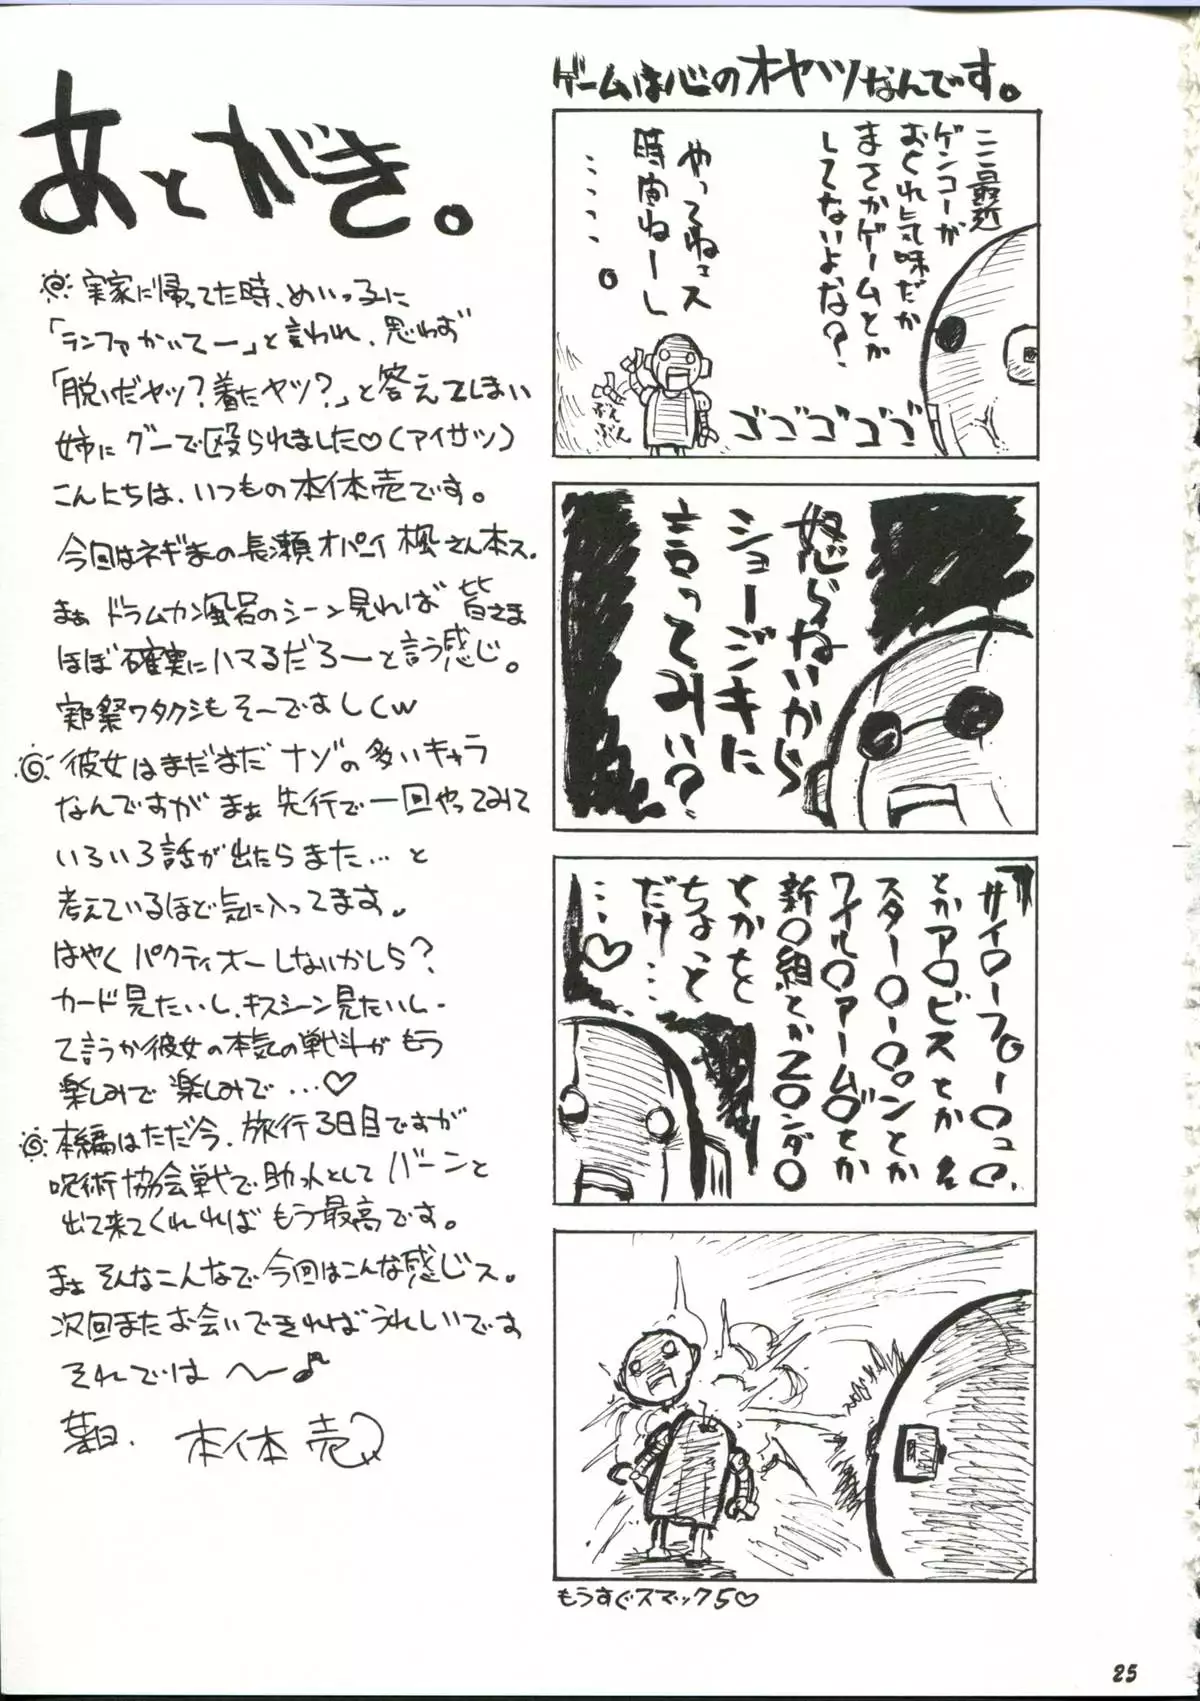 あとがき。
実家に帰ってた時、めいっ子に
「ランファかいてー」と言われ、思わず
「脱いだヤツ?着たヤツ?」と答えてしまい
姉にグーで殴られました♡(アイサツ)
こんにちは、いつもの本体売です。
今回はネギまの長瀬オパーイ楓さん本ス。
まぁドラムカン風呂のシーン見れば皆さま
ほぼ確実にハマるだろーと言う感じ。
実際ワタクシもそーですましくw
彼女はまだまだナゾの多いキャラ
なんですがまぁ先行で一回やってみて
いろいろ話が出たらまた…と
考えているほど気に入ってます。
はやくパクティオーしないかしら?
カード見たいし、キスシーン見たいし、
て言うか彼女の本気の戦斗がもう
楽しみで楽しみで…♡
本編はただ今、旅行3日目ですが
呪術協会戦で助っ人としてバーンと
出て来てくれればもう最高です。
まぁそんなこんなで今回はこんな感じス。
次回またお会いできればうれしいです
それでは へー♪
本体売
ゲームは心のオヤツなんです。
ここ最近
ゲンコーが
おくれ気味だが
まさかゲームとか
してないよな?
やってねェス
時間ねーし
……。
ぶんぶん
ゴゴゴゴゴ
怒らないから
ショージキに
言ってみい?
サイ〇ーフ〇ー〇ュ〇、
とかア〇ビスとか
スター〇ー〇〇ンとか
ワイル〇アーム〇とか
新〇組とかZ〇ンダ〇
とかを
ちょっと
だけ…
…♡
もうすぐスマック5♡
25